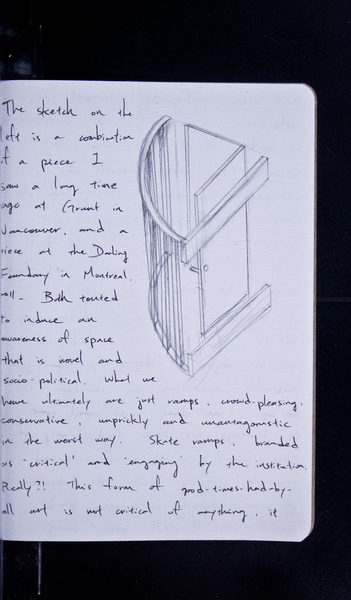 The sketch on the
left is a combination
of a piece I
saw a long time
ago at Grunt in
Vancouver, and a
piece at the Darling
Foundary in Montreal.
Both touted
to induce an
awareness of space
that is novel and
socio-political. What we
have ultimately are just ramps, crowd-pleasing,
conservative, unprickly and unantagonistic
in the worst way. Skate ramps, branded
as 'critical' and 'engaging' by the institution.
Really?! This form of good-times-had-by-
all art is not critical of anything, it